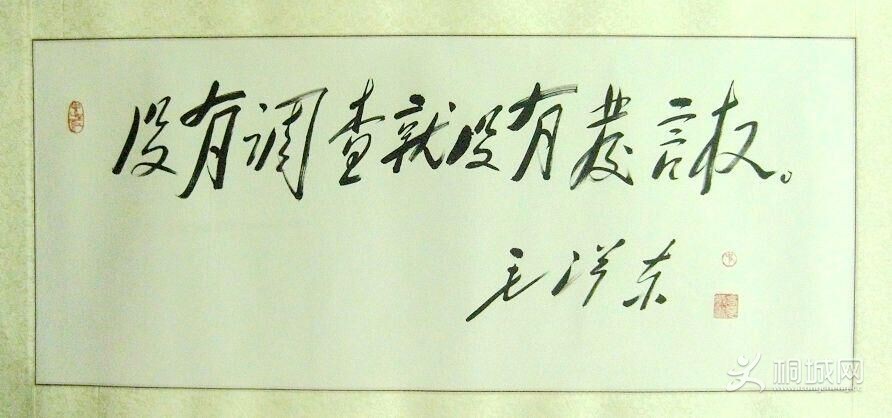 没有调查就没有發言权。
毛泽东
桐城网